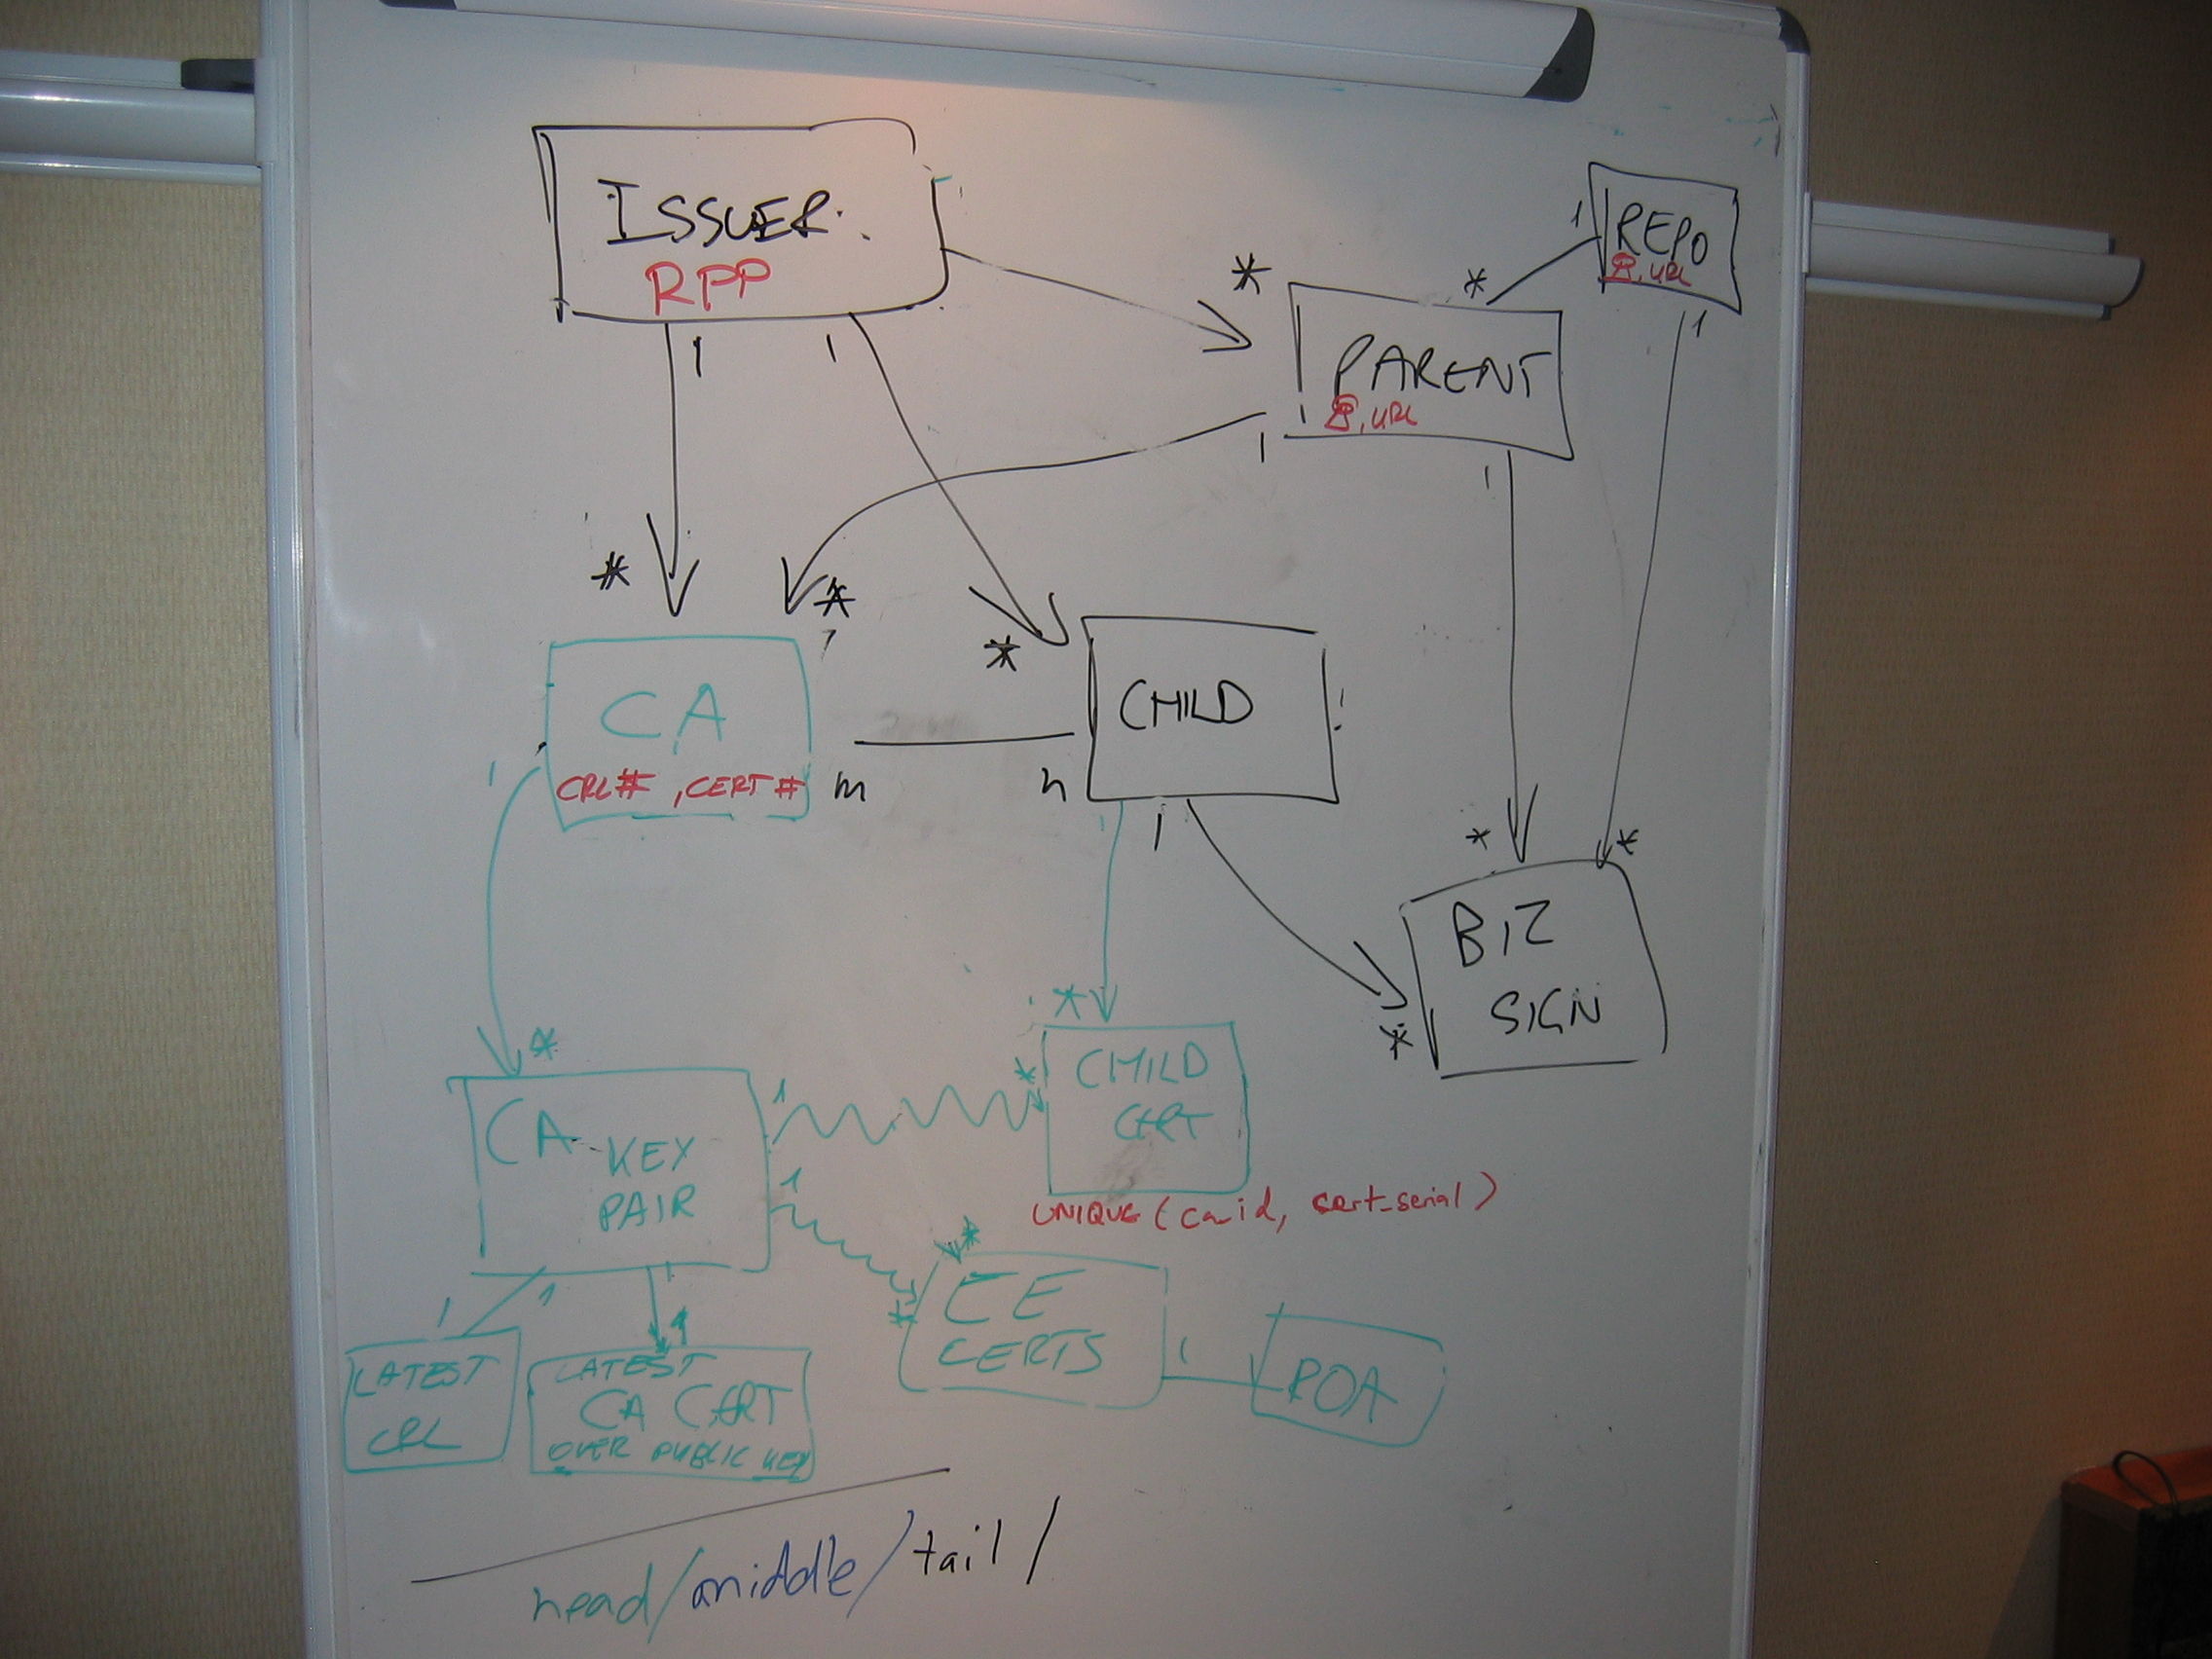 ISSUER:
RPP
REPO
, URL
PARENT
, URL
1
1
1
*
*
1
1
1
*
*
*
CA
CRL#, CERT#
m
n
CHILD
1
1
1
*
*
BIZ
SIGN
*
*
*
CA KEY
PAIR
1
*
CHILD
CERT
UNIQUE (ca_id, cert_serial)
1
*
*
CERTS
1
ROA
1
1
1
LATEST
CRL
LATEST
CA CERT
OVER PUBLIC KEY
head/middle/tail/